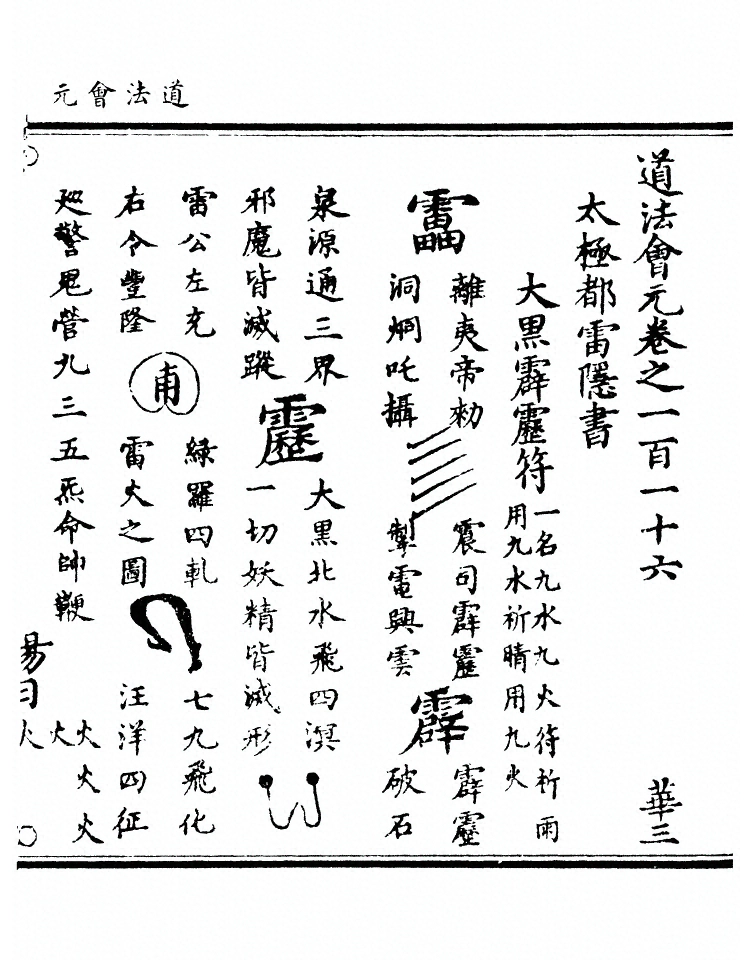 道法會元
道法會元卷之一百一十六 華三
太極都雷隱書
大黑霹靂符 一名九水九火符祈雨
用九水祈晴用九火
離夷帝勑 震司霹靂 霹靂
洞炯吒攝 掣電興雲 霹 破石
泉源通三界 大黑北水飛四溟
邪魔皆滅蹤 靂 一切妖精皆滅形
雷公左充 綠羅四軋 七九飛化
右令豐隆 雷火之圖 汪洋四征
廵警鬼營九三五炁命帥鞭 火火火
火